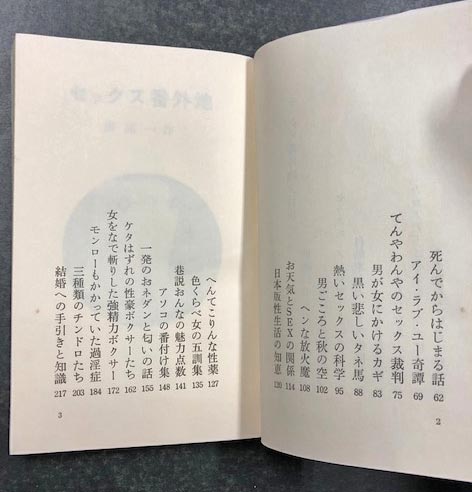 死んでからはじまる話 62
アイ・ラブ・ユー奇譚 69
てんやわんやのセックス裁判 75
男が女にかけるカギ 83
黒い悲しいタネ馬 88
熱いセックスの科学 95
男ごころと秋の空 102
ヘンな放火魔 108
お天気とSEXの関係 114
日本版性生活の知恵 120
2
へんてこりんな性薬 127
色くらべ女の五訓集 135
巷説おんなの魅力点数 141
アソコの番付け集 148
一発のおネダンと匂いの話 155
ケタはずれの性豪ボクサーたち 162
女をなで斬りした強精力ボクサー 172
モンローもかかっていた過淫症 184
三種類のチンドロたち 203
結婚への手引きと知識 217
3
セックス番外地